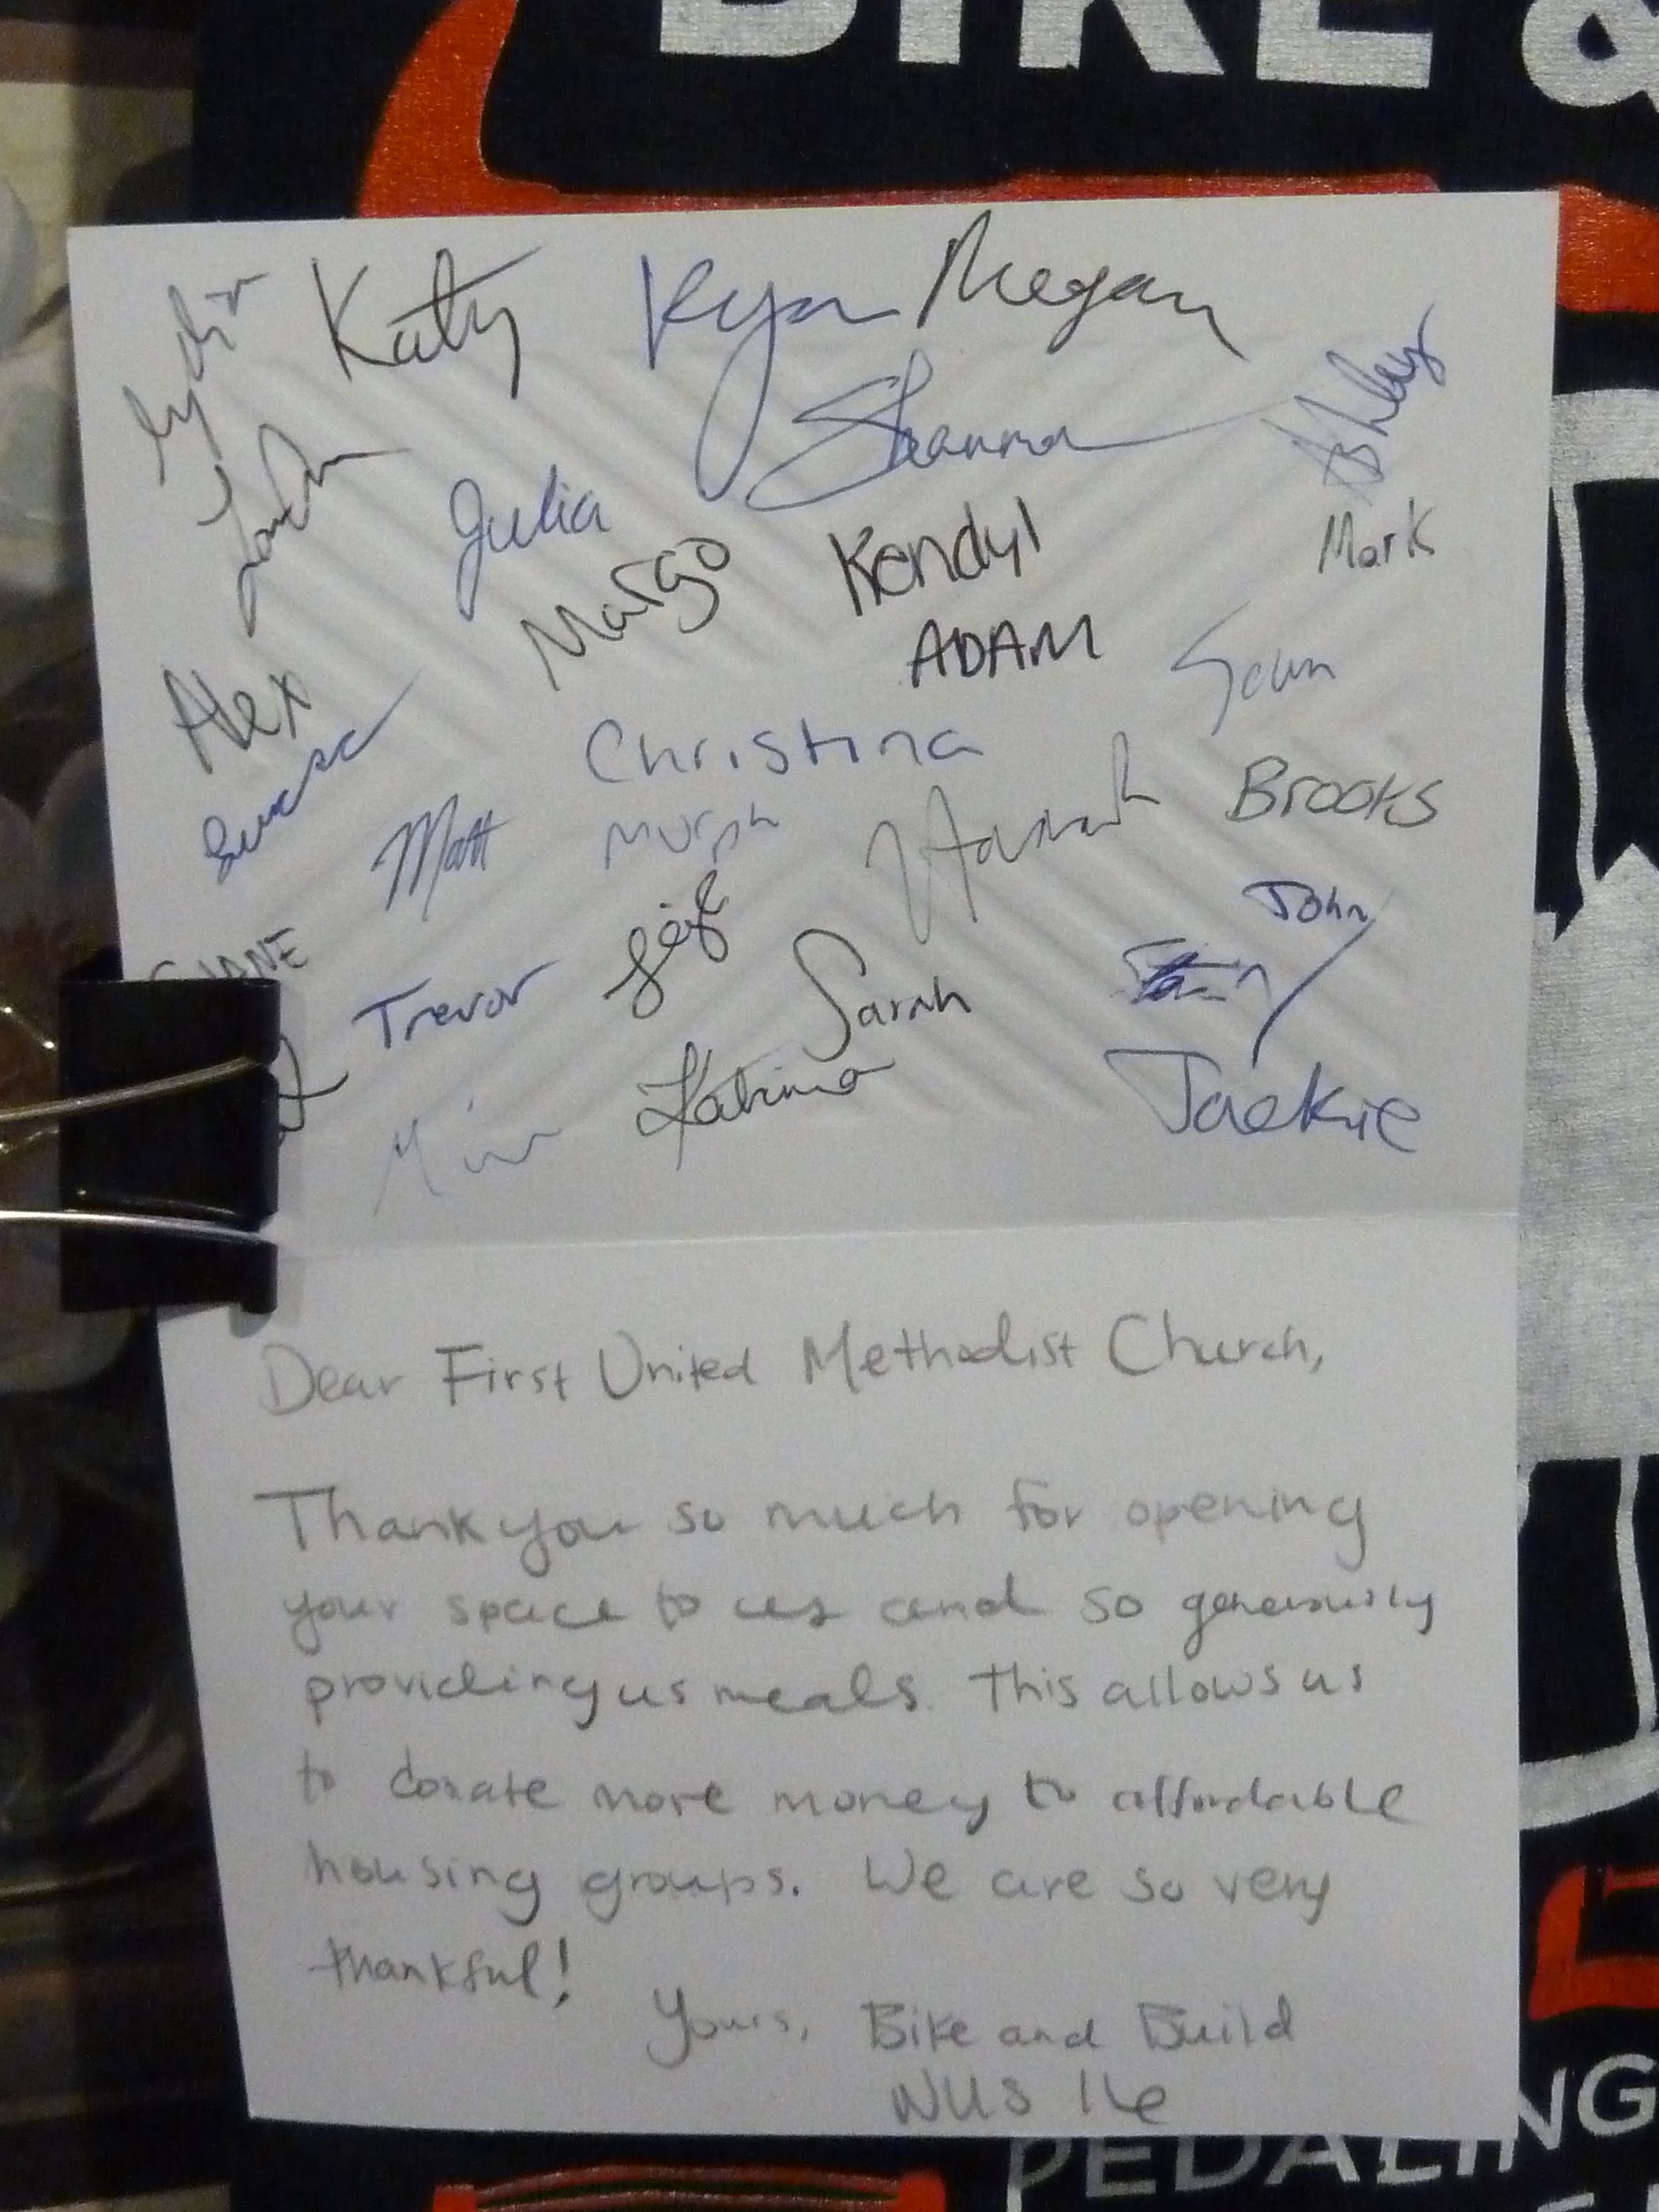 BIKE &
Lydia Katy Ryan Megan
Shanna Ashley
Julia
Margo Kendyl Mark
ADAM Sean
Alex
Christina
Matt Murph Hannah Brooks
Trevor Leif Sarah John
Katrina Jackie
Dear First United Methodist Church,
Thank you so much for opening
your space to us and so generously
providing us meals. This allows us
to donate more money to affordable
housing groups. We are so very
thankful!
Yours, Bike and Build
NUS 16
PEDALING